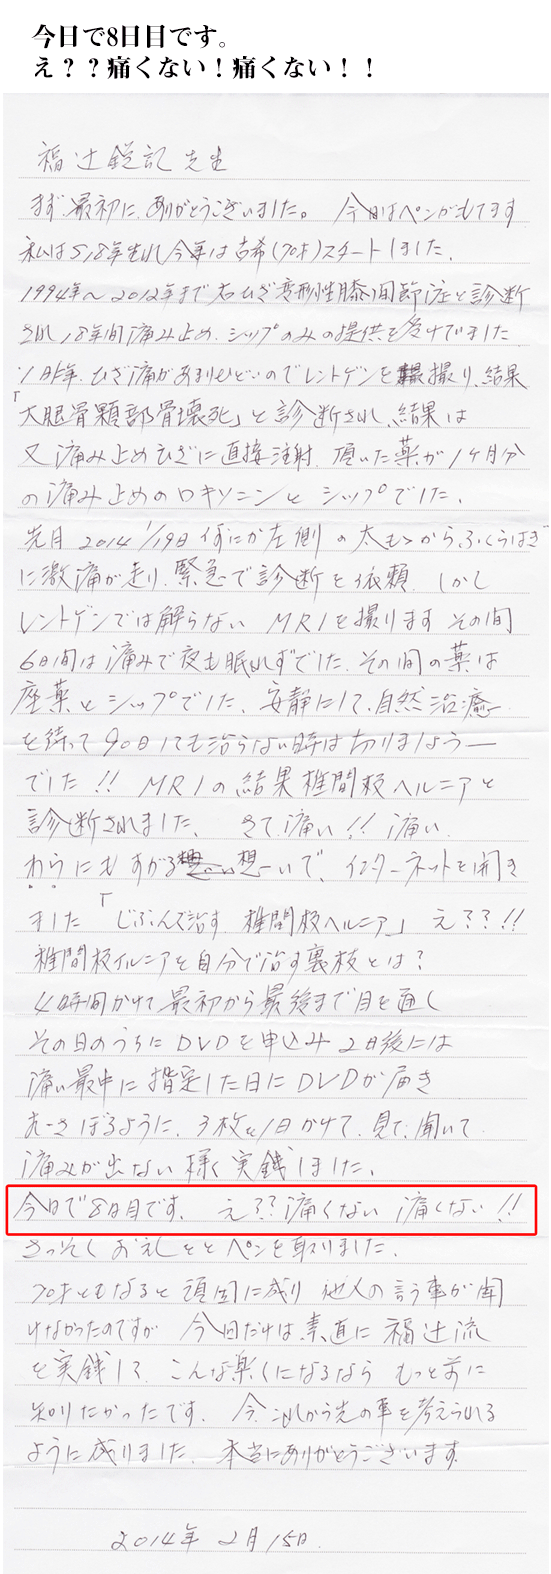 今日で8日目です。
え？？痛くない！痛くない！！
福辻鋭記先生
まず最初に、ありがとうございました。 今日はペンがもてます
私はS18年生れ今年は古希(70才)スタートしました、
1994年～2012年まで右ひざ変形性膝関節症と診断
され18年間痛み止め、シップのみの提供を受けていました
1昨年、ひざ痛があまりひどいのでレントゲンを撮り、結果
「大腿骨顆部骨壊死」と診断され、結果は
又痛み止めひざに直接注射、頂いた薬が1ヶ月分
の痛み止めのロキソニンとシップでした、
先月2014 1/19日 左側の太ももからふくらはぎ
に激痛が走り、緊急で診断を依頼、しかし
レントゲンでは解らないMRIを撮ります その間
6日間は痛みで夜も眠れずでした、その間の薬は
座薬とシップでした、安静にして、自然治癒
を待って90日しても治らない時は切りましょうー
でした!! MRIの結果椎間板ヘルニアと
診断されました、 さて、痛い!! 痛い、
わらにもすがる想いで、インターネットを開き
ました「じぶんで治す 椎間板ヘルニア」 え??!!
椎間板ヘルニアを自分で治す裏技とは?
4時間かけて最初から最後まで目を通し
その日のうちにDVDを申込み2日後には
痛い最中に指定した日にDVDが届き
むさぼるように、3枚を1日かけて、見て、聞いて
痛みが出ない様く実銭しました、
今日で8日目です、 え??痛くない 痛くない!!
さっそくお礼をとペンを取りました、
70才ともなると頑固に成り 他人の言う事が聞
けなかったのですが 今日だけは素直に福辻流
を実銭して、こんな楽しになるなら もっと前に
知りたかったです、今、これから先の事を考えられる
ように成りました、本当にありがとうございます。
2014年 2月15日.